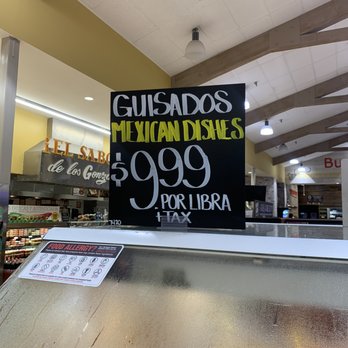 GUISADOS
MEXICAN DISHES
$9.99
POR LIBRA
+TAX
EL SABO
de los Gonz
FOOD ALLERGY?
Bu